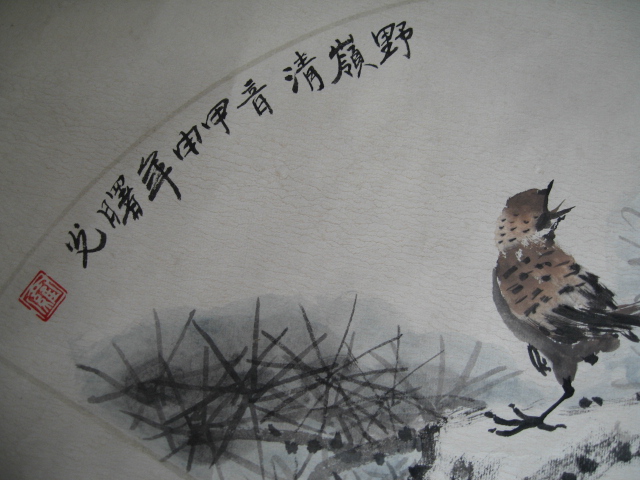 野嶺清音甲申年曙光